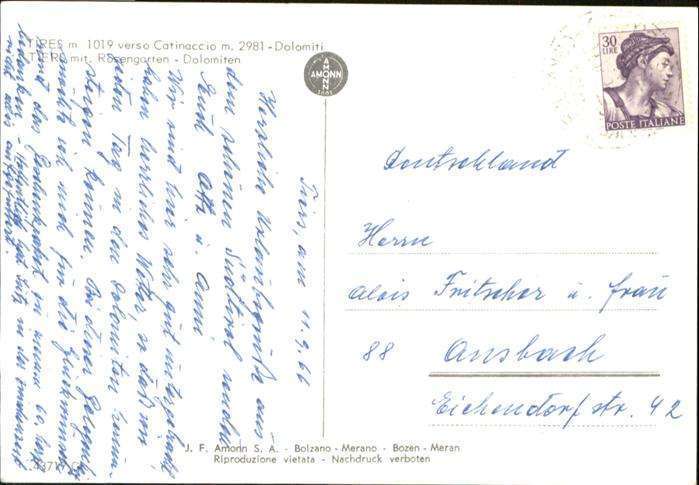 TIRES m. 1019 verso Catinaccio m. 2981 - Dolomiti
TIERS mit. Rosengarten - Dolomiten
AMONN
AMONN
30
LIRE
POSTE ITALIANE
Tiers, am 11.9.66
Herzliche Urlaubsgrüße aus
dem schönen Südtirol senden
Euch Otto u. Anni
Wir sind hier sehr gut untergebracht
haben herrliches Wetter, so daß wir
jeden Tag in den Dolomiten herum-
steigen können. Bei dieser Gelegenheit
möchte ich mich für die Glückwünsche
und das Geschenkpaket zu meinem 60. sehr
bedanken
Deutschland
Herrn
Alois Fritscher u. Frau
88 Ansbach
Eichendorfstr. 42
J. F. Amonn S. A. - Bolzano - Merano - Bozen - Meran
Riproduzione vietata - Nachdruck verboten